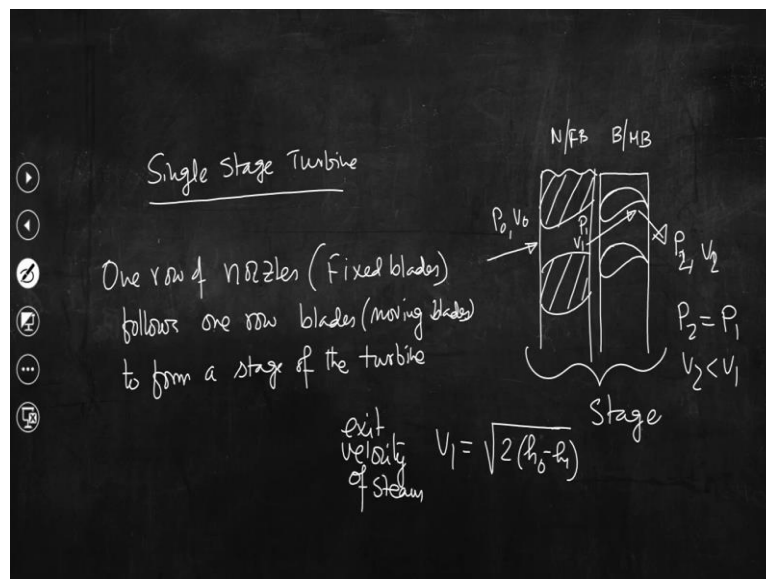 Single Stage Turbine
One row of nozzles (Fixed blades)
follows one row blades (moving blades)
to form a stage of the turbine
N/FB B/MB
P₀, V₀
P₁
V₁
P₂, V₂
P₂ = P₁
V₂ < V₁
Stage
exit
velocity
of steam
V₁ = √2(h₀-h₁)